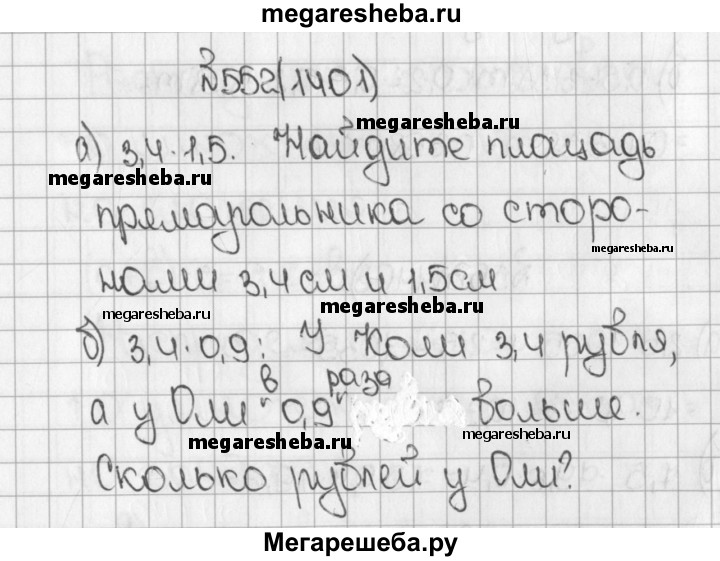 megaresheba.ru
№552(1401)
megaresheba.ru
а) 3,4·1,5. Найдите площадь
megaresheba.ru
прямоугольника со сторо-
megaresheba.ru
нами 3,4 см и 1,5см
megaresheba.ru megaresheba.ru
б) 3,4·0,9: У Коли 3,4 рубля,
в раза
а у Оли "0,9" больше.
megaresheba.ru megaresheba.ru
Сколько рублей у Оли?
megaresheba.ru
Мегарешеба.ру